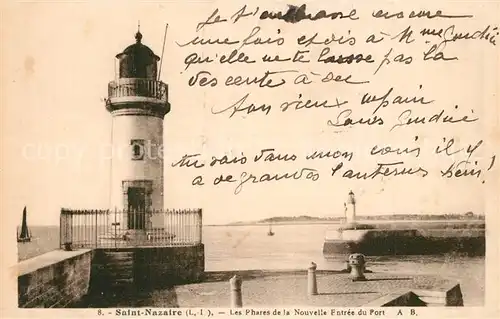 Je t'embrasse encore
une fois et dis à Mme Gendiée
qu'elle ne te laisse pas la
descente à sec
Ton vieux copain
Louis Gendiée
tu vois dans mon coin il y
a de grandes lanternes hein!
8. - Saint-Nazaire (L. I.). - Les Phares de la Nouvelle Entrée du Port A B.